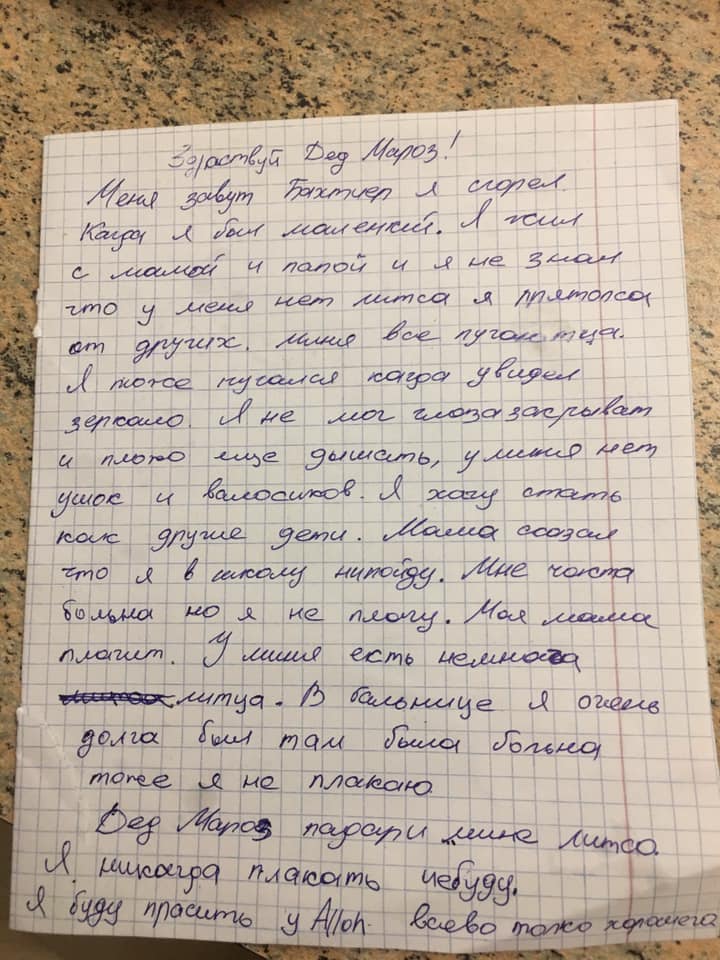 Здраствуй Дед Мароз!
Меня завут Бахтиер я сгорел.
Кагда я был маленкий. Я жил
с мамой и папой и я не знал
что у меня нет литса я прятолса
от других. миня все пугаютца.
Я тоже пугался кагда увидел
зеркало. Я не мог глоза закрыват
и плохо еще дышать, у миня нет
ушок и валосиков. Я хочу стать
как другие дети. Мама сказал
что я в школу нипойду. Мне часта
больна но я не плачу. Моя мама
плачит. У миня есть немнога
литца. В бальнице я очень
долга был там была больна
тоже я не плакаю.
Дед Мароз падари мине литсо.
Я никагда плакать небуду.
Я буду прасить у Alloh всево тоже харошега